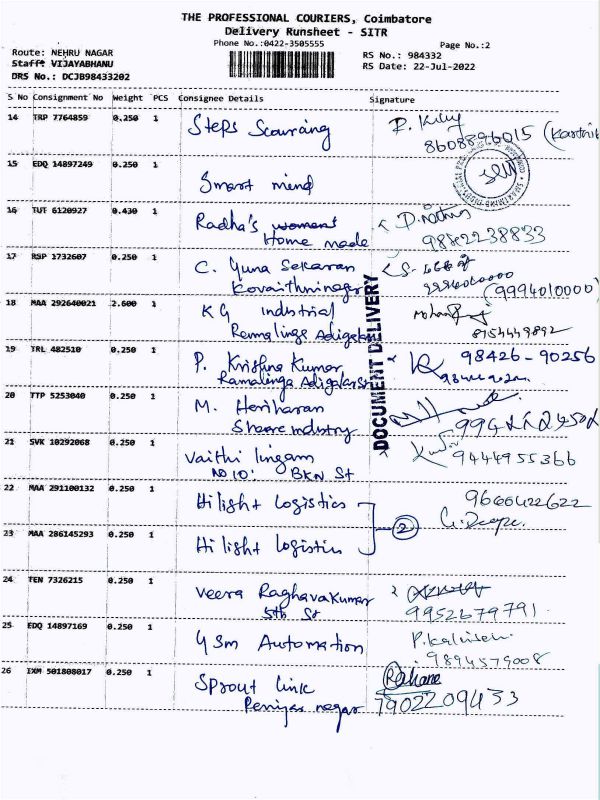 THE PROFESSIONAL COURIERS, Coimbatore
Delivery Runsheet - SITR
Phone No.:0422-3505555 Page No.:2
Route: NEHRU NAGAR RS No.: 984332
Stafft VIJAYABHANU RS Date: 22-Jul-2022
DRS No.: DCJB98433202
S No Consignment No Weight PCS Consignee Details Signature
14 TRP 7764859 0.250 1 Steps Scouring
8608896015
15 EDQ 14897249 0.250 1 Smart mind
16 TUT 6120927 0.430 1 Radha's womens
Home made 9882238833
17 RSP 1732607 0.250 1 C. Guna Sekaran
Kovaithirunagar (9994010000)
18 MAA 292640021 2.600 1 KG industrial
Ramalinga Adigalar
19 TRL 482510 0.250 1 P. Krishna Kumar 98426-90256
Ramalinga Adigalar St
20 TTP 5253040 0.250 1 M. Hariharan
Sharre industry
21 SVK 10292068 0.250 1 Vaithi lingam 9444955366
NO 10: BKN St
22 MAA 291100132 0.250 1 Hilight Logistics 9666422622
2
23 MAA 286145293 0.250 1 Hilight logistics
24 TEN 7326215 0.250 1 Veera Raghavakumar
5th St 9952679791
25 EDQ 14897169 0.250 1 4 Sm Automation
9894579008
26 IXM 501808017 0.250 1 Sprout link
Periyar nagar 7902209433
DOCUMENT DELIVERY